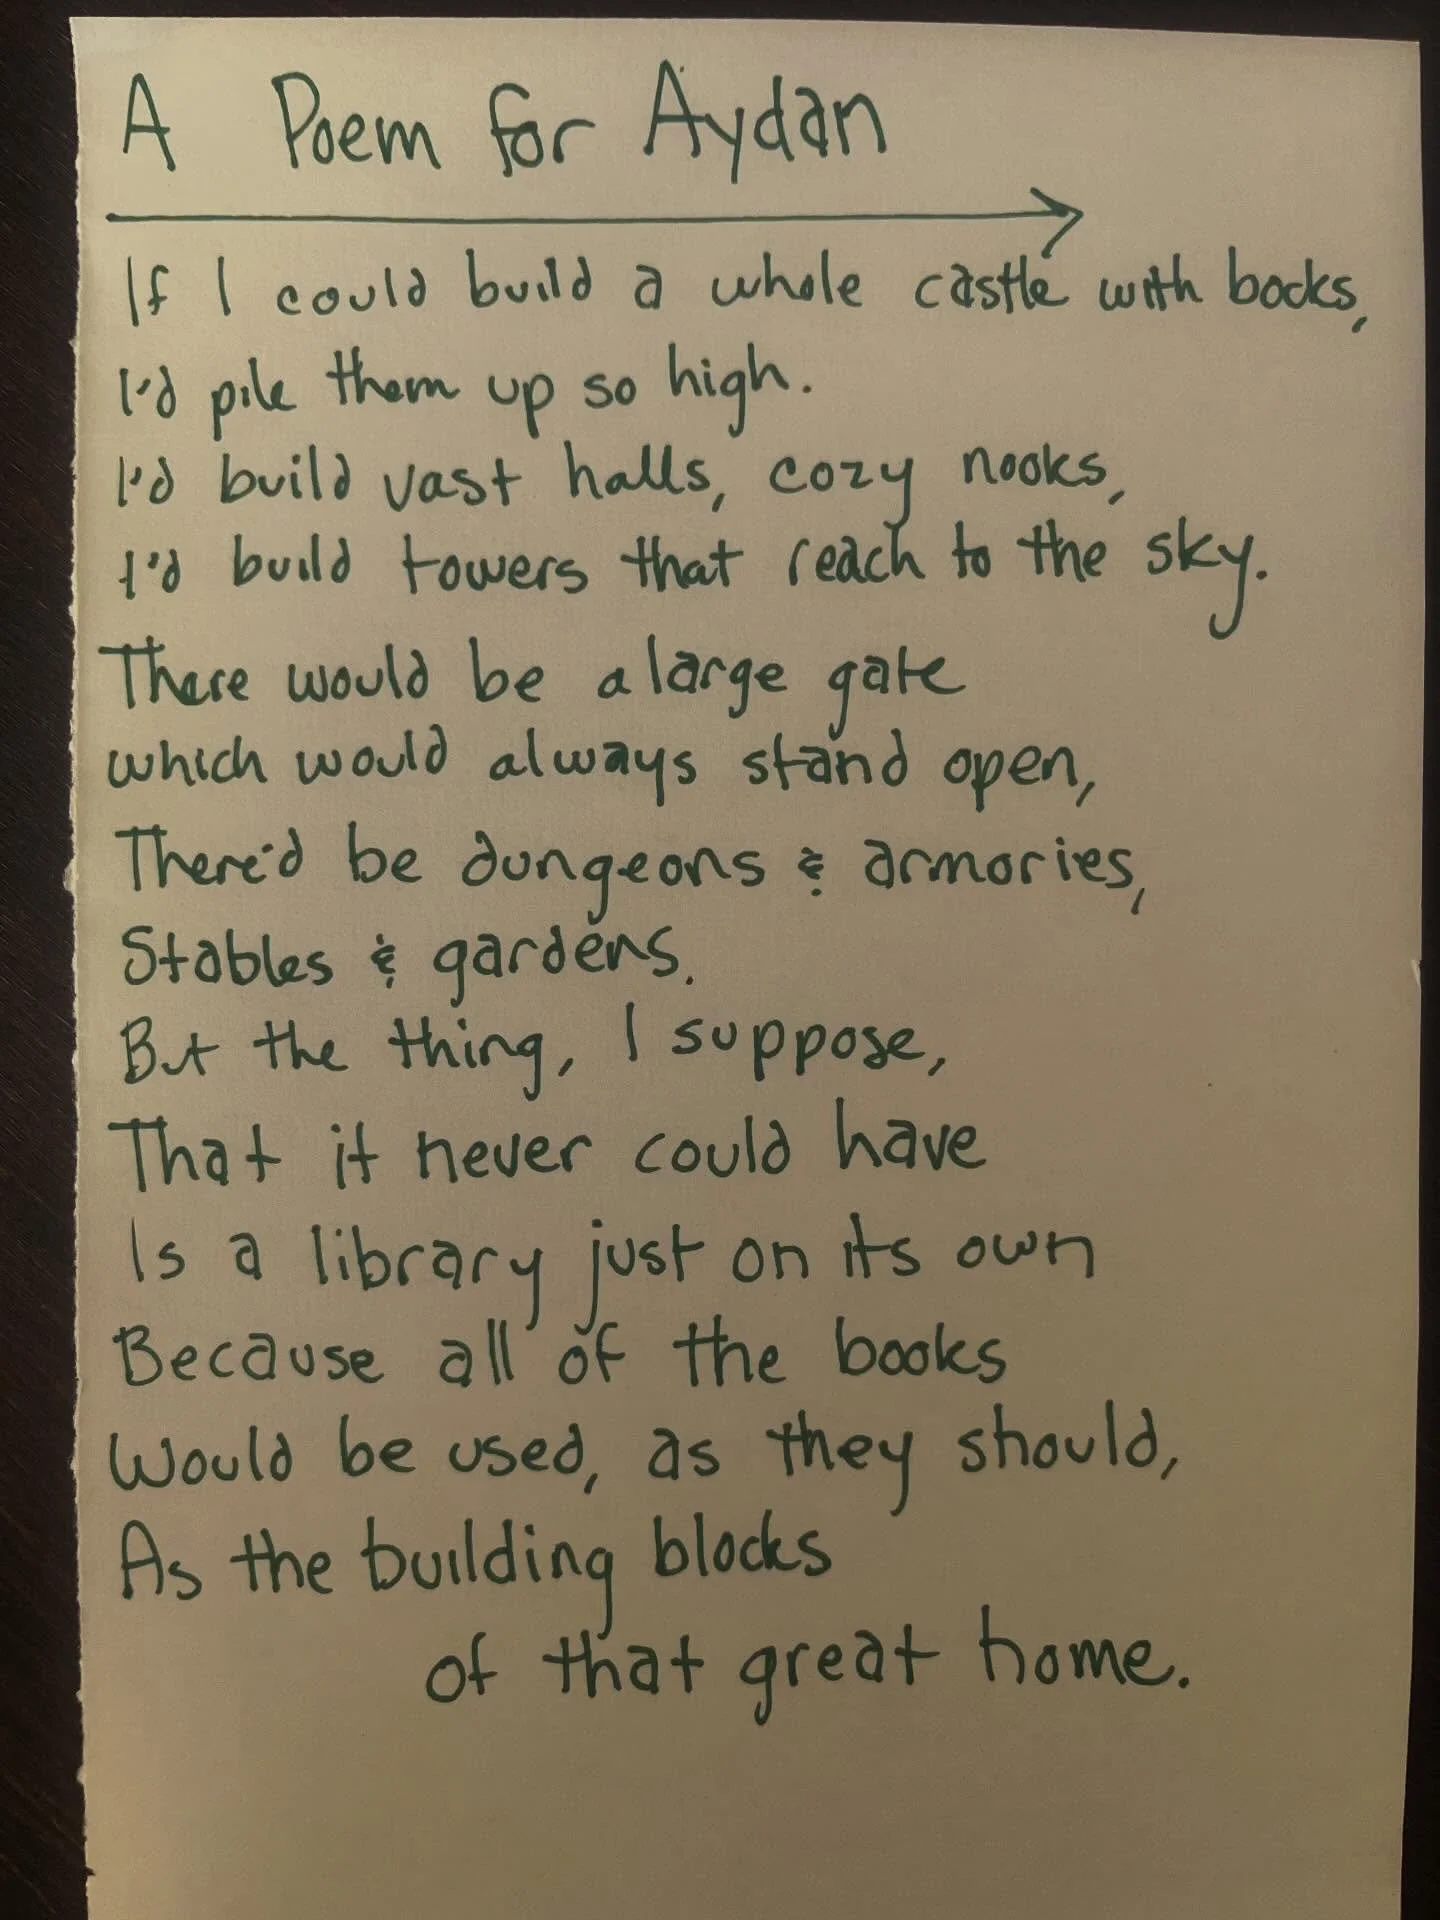 A Poem for Aydan
If I could build a whole castle with books,
I'd pile them up so high.
I'd build vast halls, cozy nooks,
I'd build towers that reach to the sky.
There would be a large gate
which would always stand open,
There'd be dungeons & armories,
Stables & gardens.
But the thing, I suppose,
That it never could have
Is a library just on its own
Because all of the books
Would be used, as they should,
As the building blocks
of that great home.